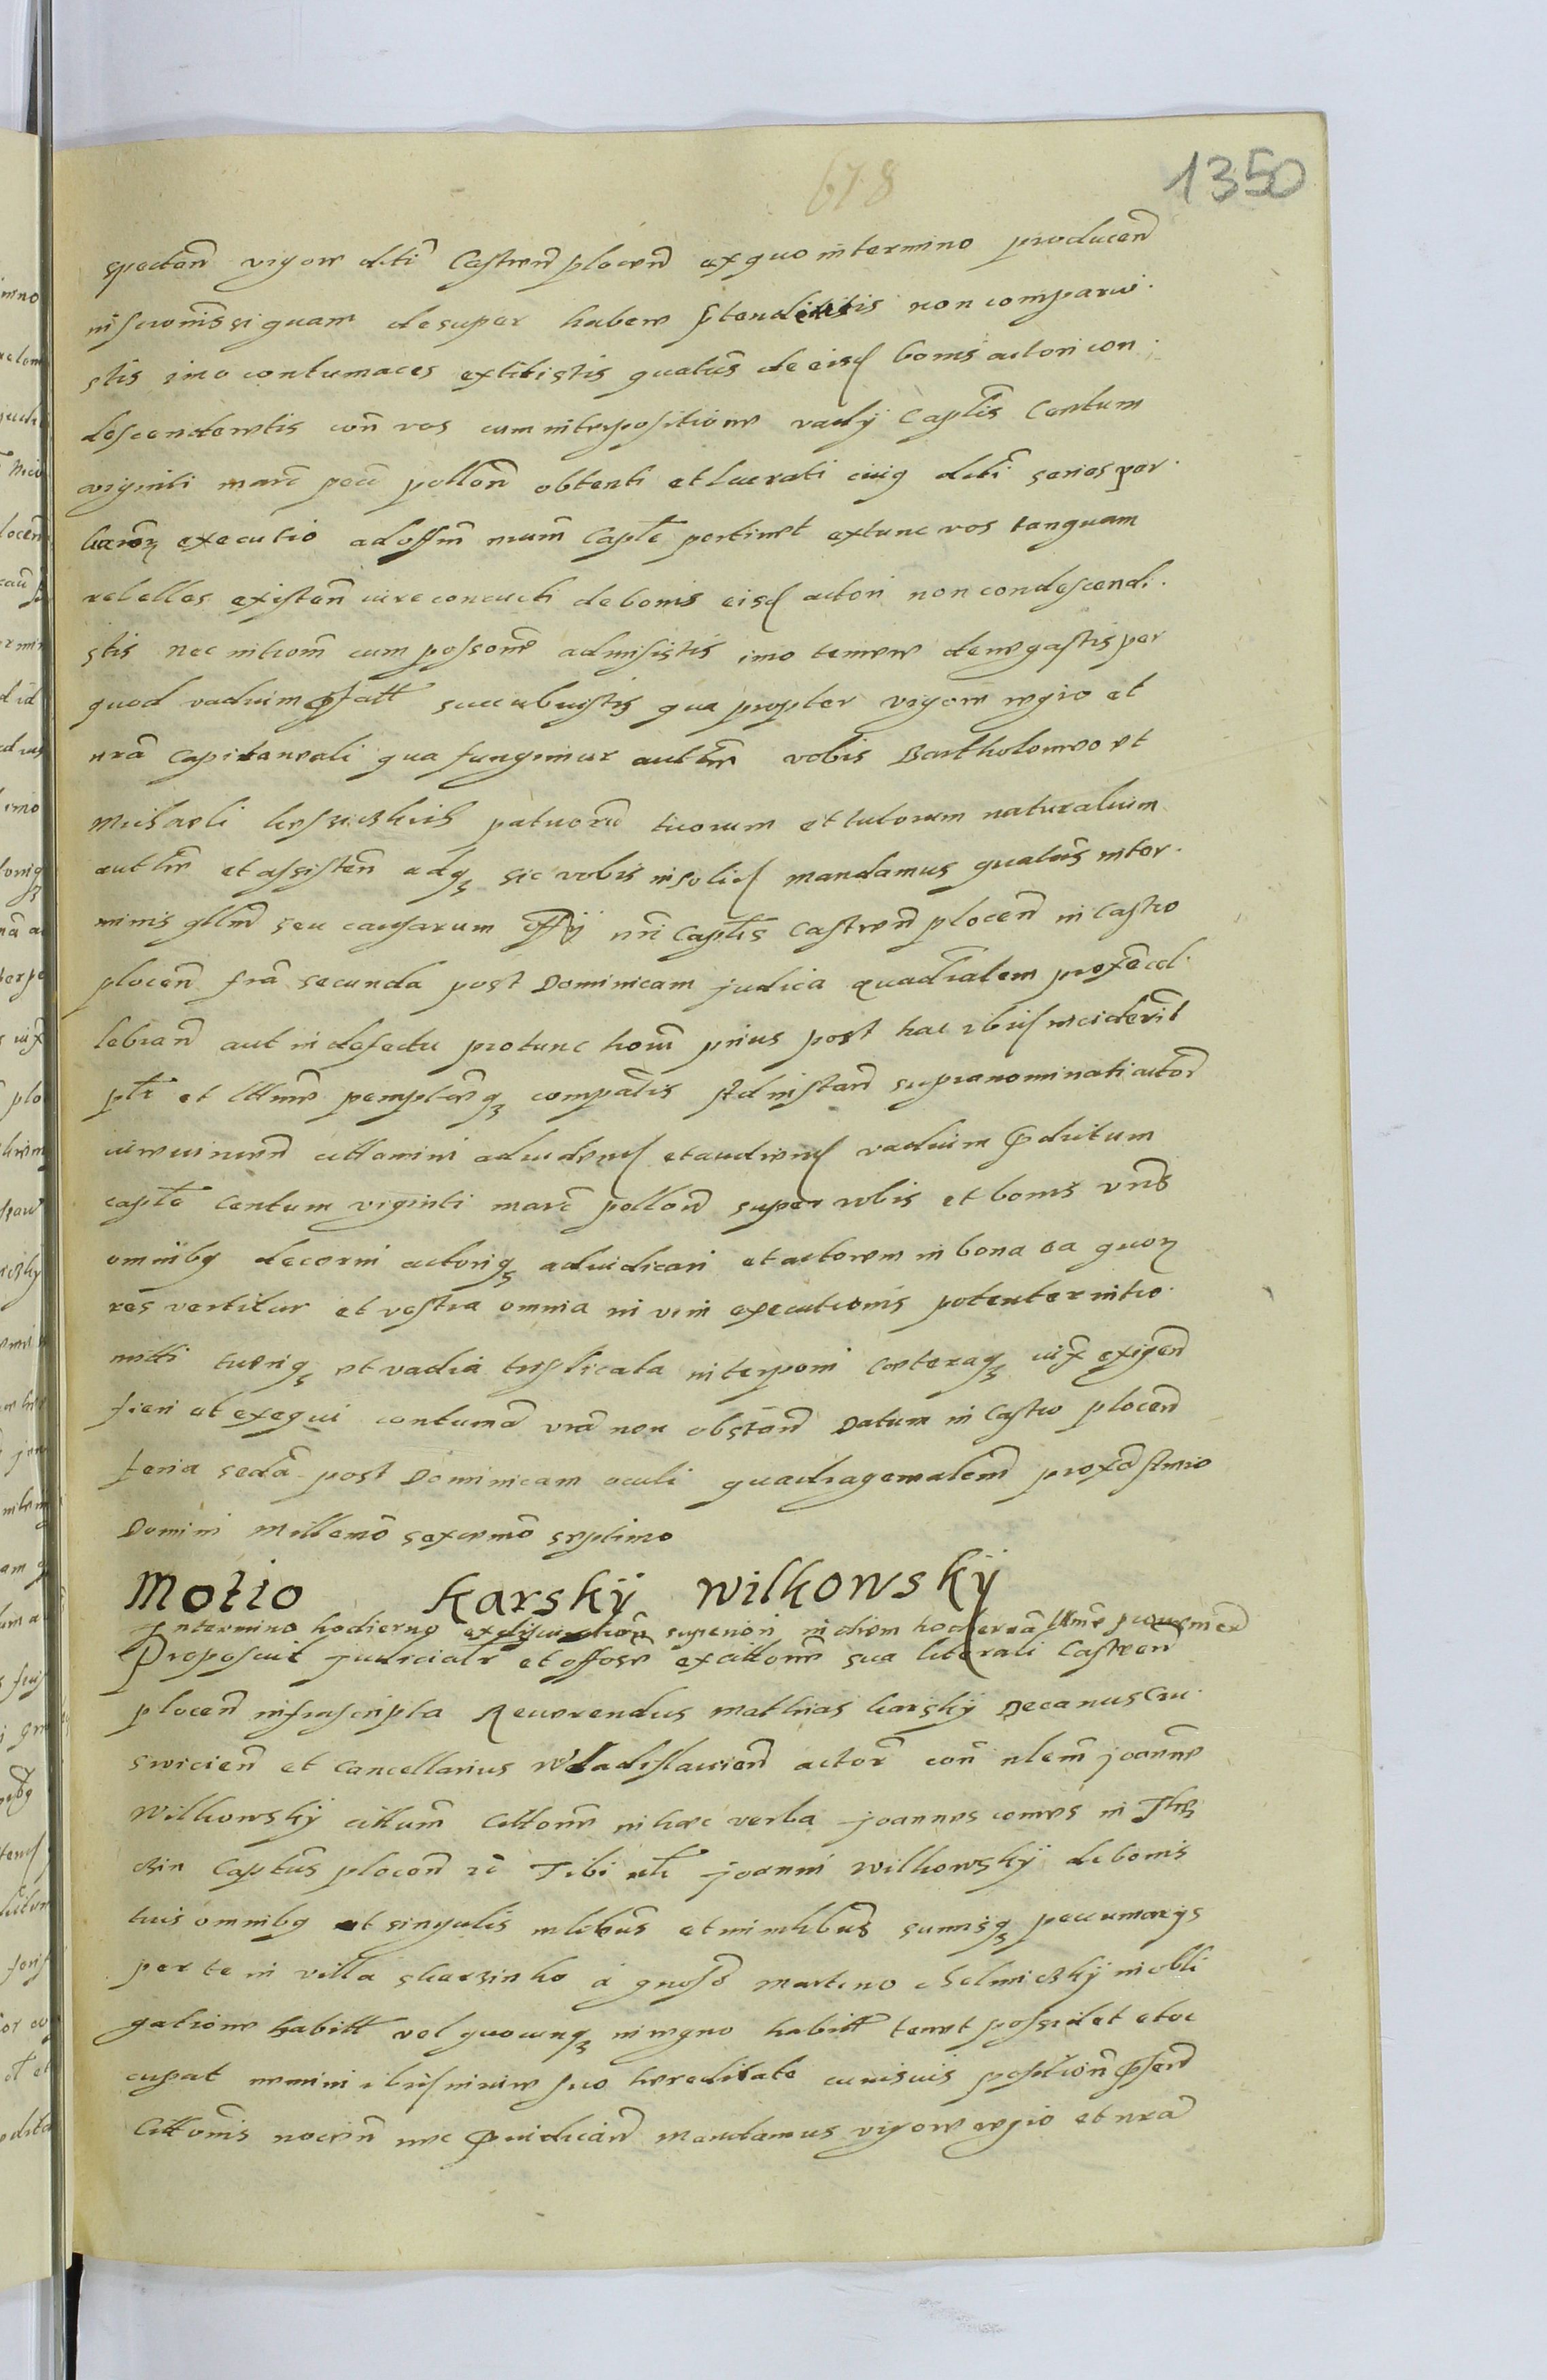 678
1350
spectan vigore dcti Castren plocen ex quo in termino producen
inscronis si quam desuper habere ptenderetis non comparui.
stis imo contumaces extitistis quatus de eisd bonis actori con.
descenderetis con vos cum interpositione vadij Captis Centum
viginti marc pecu pollon obtenti et lucrati cuiq dcti series par.
executio ad offm nrum Capte pertinet extunc vos tanquam
rebelles existen iure conuicti de bonis eisd actori non condescendi.
stis nec introm eum possone admisistis imo temere denegastis per
quod vadium pfatt succubuistis qua propter vigore regio et
nra Capitaneali qua fungimur autte vobis Bartholomeo et
Michaeli patruoru tuorum et tutorum naturalium
autte et assisten adq sic vobis in solid mandamus quatus in ter.
minis gllm seu causarum offij nri Captis Castren plocen in Castro
plocen fra secunda post Dominicam judica quadralem prox cel.
lebran aut in defectu protunc horu prius post hac ibus inciderit
plr et lttme pempteq compatis Ad instan supranominati actor
citto mini ad viden et audien vadium pdictum
capte Centum viginti marc pollon super vobis et bonis vris
omnibq decerni actoriq adiudicari et actorem in bona ea quor
res vertitur et vestra omnia in vim executionis potenter intro.
mitti tueriq et vadia triplicata interponi Coeteraq iux exigen
fieri et exequi contuma vra non obstan Datum in Castro plocen
feria seda post Dominicam oculi quadragemalem prox Anno
Domini Millemo sexcemo septimo
Motio Karskÿ Wilkowskÿ
In termino hodierno ex superiori in diem hodierna lttme
Proposuit judicialr et offose ex cittone sua literali Castren
plocen infrascripta Reuerendus Mathias Karskÿ Decanus Cru.
swicien et Cancellarius Wladislauien actor con nlem joanne
Wilkowskÿ cittum Cittone in haec verba joannes comes in
czin Captus plocen Tibi nli joanni Wilkowskÿ de bonis
tuis omnibq et singulis mlibus et inmlibus sumisq pecuniarijs
per te in villa skarzinko a gnoso Martino chelmickÿ in obli
gatione habitt vel quocunq in regno habitt tenet possidet et oc
cupat nemini iure suo hereditate cuiusuis position psen
Cittonis nocen nec piudican mandamus vigore regio et nra